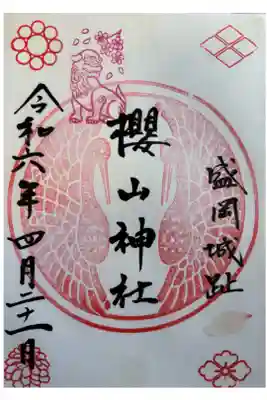 盛岡城址
櫻山神社
令和六年 四月二十一日